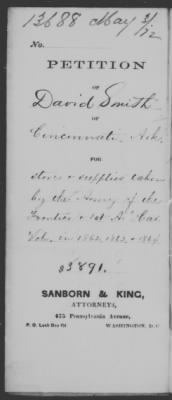 13688 May 3/72
No.
PETITION
OF
David Smith
OF
Cincinnati Ark.
FOR
stores & supplies taken
by the Army of the
Frontier & 1st A Cav
Vols. in 1862, 1863, & 1864
$3891.
SANBORN & KING,
ATTORNEYS,
475 Pennsylvania Avenue,
P. O. Lock Box 04 WASHINGTON, D. C.